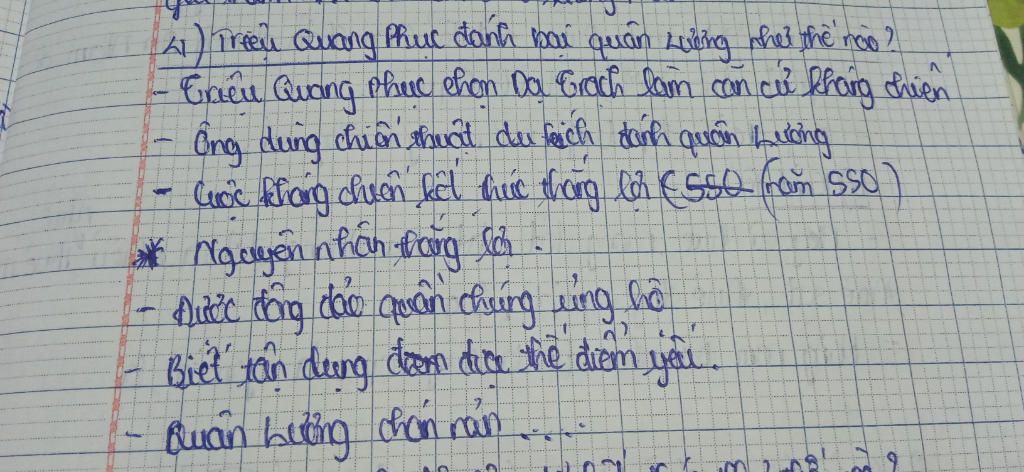 4) Triệu Quang Phục đánh bại quân Lương như thế nào?
- Triệu Quang Phục chọn Dạ Trạch làm căn cứ kháng chiến
- Ông dùng chiến thuật du kích đánh quân Lương
- Cuộc kháng chiến kết thúc thắng lợi (550 (năm 550)
* Nguyên nhân thắng lợi.
- Được đông đảo quần chúng ủng hộ
- Biết tận dụng địa thế điểm yếu.
- Quân Lương chán nản .....